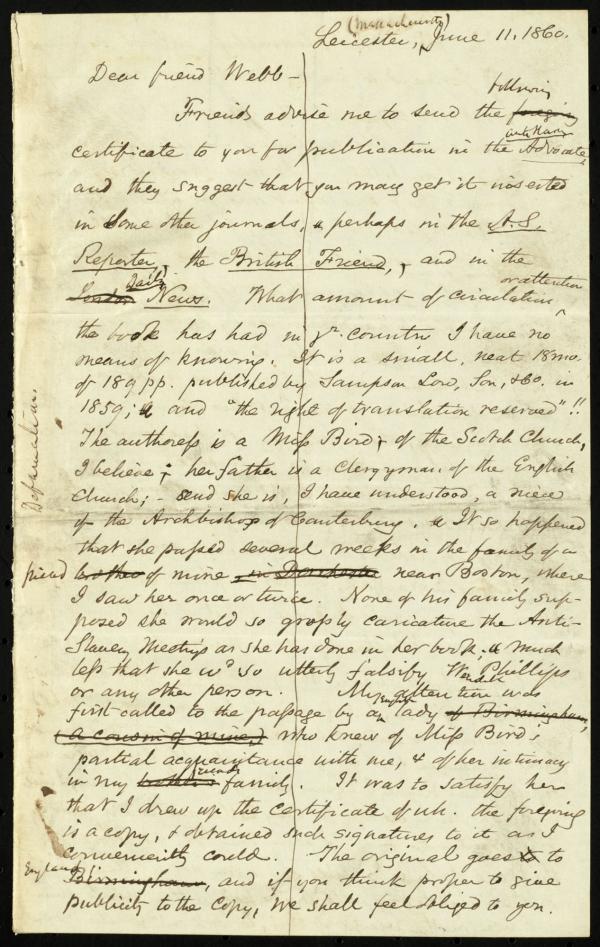 (Massachusetts)
Leicester, June 11, 1860.
Dear friend Webb –
following
Friends advise me to send the foregoing
Anti Slavery
certificate to you for publication in the Advocate,
and they suggest that you may get it inserted
in some other journals, & perhaps in the A.S.
Reporter, the British Friend, and in the
Daily
London News. What amount of circulation
or attention
the book has had in yr. country I have no
means of knowing. It is a small, neat 18mo.
of 189 pp. published by Sampson Low, Son, & Co. in
1859; & and "the right of translation reserved"!!
The authoress is a Miss Bird, of the Scotch Church,
I believe; her father is a clergyman of the English
Church; – and she is, I have understood, a niece
of the Archbishop of Canterbury. It so happened
that she passed several weeks in the family of a
friend brother of mine in Dorchester near Boston, where
I saw her once or twice. None of his family sup-
posed she would so grossly caricature the Anti-
Slavery Meetings as she has done in her book. & much
less that she wd so utterly falsify Wendell Phillips
or any other person. My attention was
English
first called to the passage by a lady of Birmingham,
(a cousin of mine,) who knew of Miss Bird's
partial acquaintance with me, & of her intimacy
friends
in my brother's family. It was to satisfy her
that I drew up the certificate of wh. the foregoing
is a copy, & obtained such signatures to it as I
conveniently could. The original goes to
England
Birmingham, and if you think proper to give
publicity to the copy, we shall feel obliged to you.
Defamation.